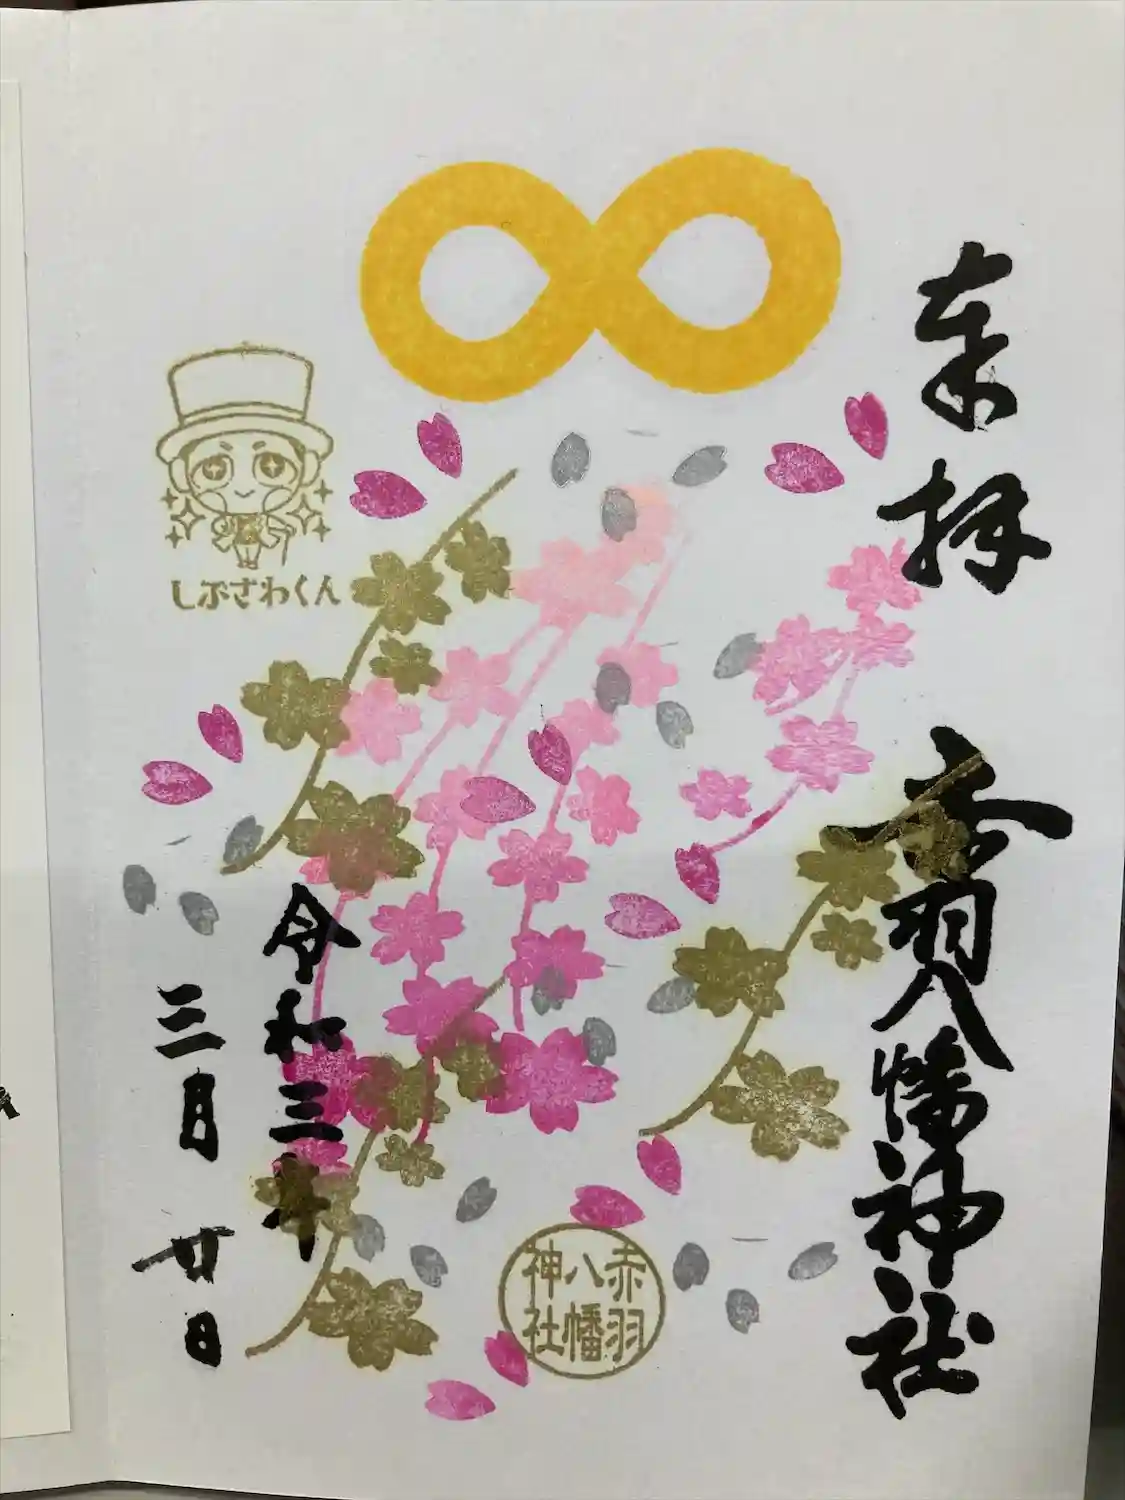 奉拝
赤羽八幡神社
令和三年
三月廿日
しぶざわくん
赤羽
八幡
神社